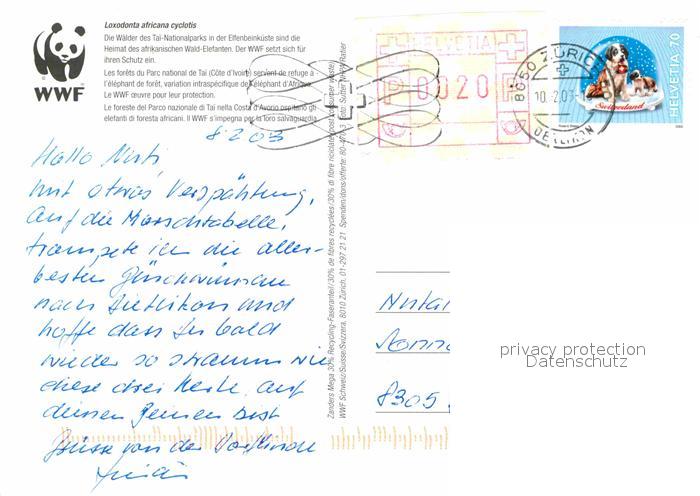 Loxodonta africana cyclotis
Die Wälder des Taï-Nationalparks in der Elfenbeinküste sind die
Heimat des afrikanischen Wald-Elefanten. Der WWF setzt sich für
ihren Schutz ein.
Les forêts du Parc national de Taï (Côte d'Ivoire) servent de refuge à
l'éléphant de forêt, variation intraspécifique de l'éléphant d'Afrique.
Le WWF œuvre pour leur protection.
Le foreste del Parco nazionale di Taï nella Costa d'Avorio ospitano gli
elefanti di foresta africani. Il WWF s'impegna per la loro salvaguardia.
WWF
HELVETIA
P 0020 P
8050 ZÜRICH
10.2.03
OERLIKON
HELVETIA 70
Switzerland
8203
Hallo
mit etwas Verspähtung,
auf die Marschtabelle,
trompete ich die aller-
besten
nach Dietlikon und
hoffe dass du bald
wieder so stramm wie
diese drei auf
deinen Beinen bist
Grüsse von der
Zanders Mega 30% Recycling-Faseranteil/30% de fibre recyclées/30% di fibre riciclate/post consumer waste
WWF Schweiz/Suisse/Svizzera, 8010 Zürich, 01-297 21 21 Spenden/dons/offerte: 80-470-3
8305
privacy protection
Datenschutz